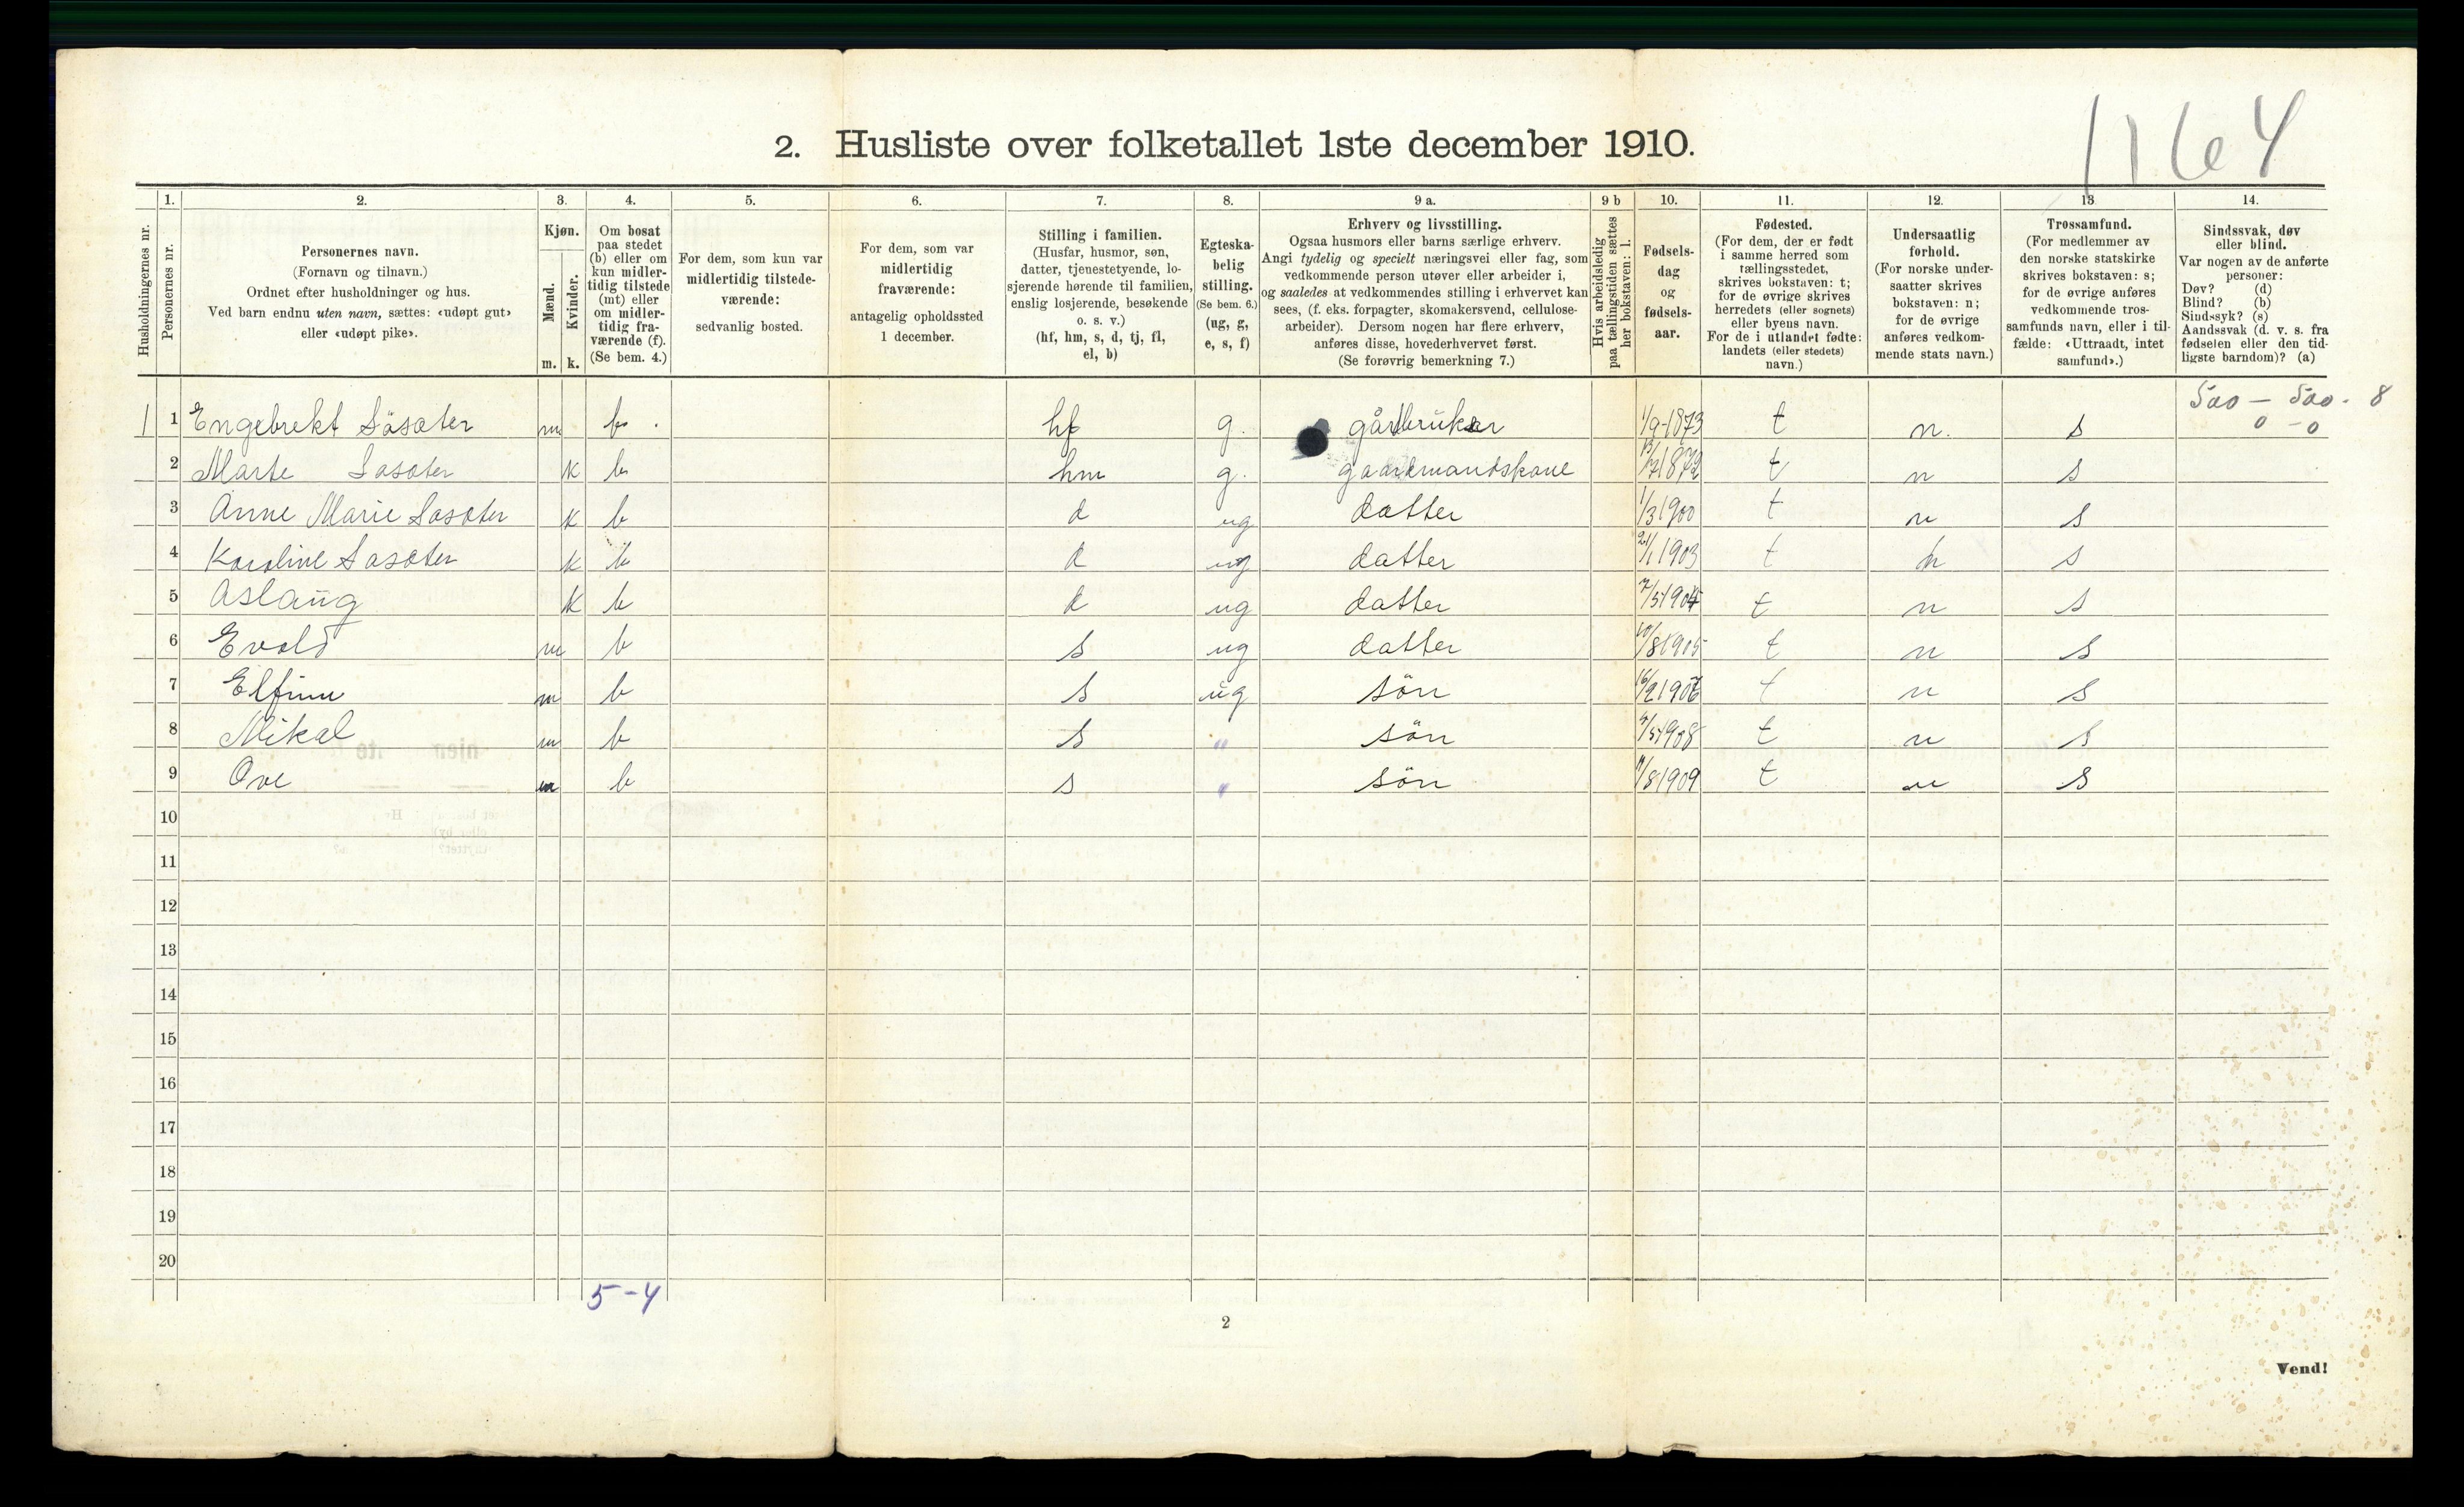 1164
2. Husliste over folketallet 1ste december 1910.
Husholdningernes nr.
1.
Personernes nr.
2.
Personernes navn.
(Fornavn og tilnavn.)
Ordnet efter husholdninger og hus.
Ved barn endnu uten navn, sættes: «udøpt gut»
eller «udøpt pike».
3.
Kjøn.
Mænd.
m.
Kvinder.
k.
4.
Om bosat
paa stedet
(b) eller om
kun midler-
tidig tilstede
(mt) eller
om midler-
tidig fra-
værende (f).
(Se bem. 4.)
5.
For dem, som kun var
midlertidig tilstede-
værende:
sedvanlig bosted.
6.
For dem, som var
midlertidig
fraværende:
antagelig opholdssted
1 december.
7.
Stilling i familien.
(Husfar, husmor, søn,
datter, tjenestetyende, lo-
sjerende hørende til familien,
enslig losjerende, besøkende
o. s. v.)
(hf, hm, s, d, tj, fl,
el, b)
8.
Egteska-
belig
stilling.
(Se bem. 6.)
(ug, g,
e, s, f)
9 a.
Erhverv og livsstilling.
Ogsaa husmors eller barns særlige erhverv.
Angi tydelig og specielt næringsvei eller fag, som
vedkommende person utøver eller arbeider i,
og saaledes at vedkommendes stilling i erhvervet kan
sees, (f. eks. forpagter, skomakersvend, cellulose-
arbeider). Dersom nogen har flere erhverv,
anføres disse, hovederhvervet først.
(Se forøvrig bemerkning 7.)
9 b
Hvis arbeidsledig
paa tællingstiden sættes
her bokstaven: l.
10.
Fødsels-
dag
og
fødsels-
aar.
11.
Fødested.
(For dem, der er født
i samme herred som
tællingsstedet,
skrives bokstaven: t;
for de øvrige skrives
herredets (eller sognets)
eller byens navn.
For de i utlandet fødte:
landets (eller stedets)
navn.)
12.
Undersaatlig
forhold.
(For norske under-
saatter skrives
bokstaven: n;
for de øvrige
anføres vedkom-
mende stats navn.)
13
Trossamfund.
(For medlemmer av
den norske statskirke
skrives bokstaven: s;
for de øvrige anføres
vedkommende tros-
samfunds navn, eller i til-
fælde: «Uttraadt, intet
samfund».)
14.
Sindssvak, døv
eller blind.
Var nogen av de anførte
personer:
Døv? (d)
Blind? (b)
Sindssyk? (s)
Aandssvak (d. v. s. fra
fødselen eller den tid-
ligste barndom)? (a)
500 — 500 - 8
0 - 0
1 1 Engebrekt Säsæter m b. hf g. gårdbruker 1/9-1873 t n. s
2 Marte Sasæter k b hm g. gaardmandskone t n s
3 Anne Marie Sasæter k b d ug datter 1/3 1900 t n s
4 Karoline Sasæter k b d ug datter 21/1 1903 t n s
5 Aslaug k b d ug datter t n s
6 Evald m b s ug datter 10/8 1905 t n s
7 Elfinn m b s ug sön t n s
8 Mikal m b s " sön t n s
9 Ove m b s " sön t n s
10
11
12
13
14
15
16
17
18
19
20
5-4
2
Vend!